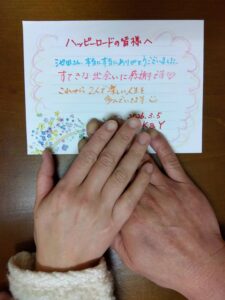 ハッピーロードの皆様へ
池田さん、本当に本当にありがとうございました。
すてきな出会いに感謝です♡
これから2人で楽しい人生を
歩んでいきます。
2026.3.5
K&Y